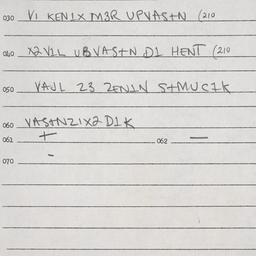 030 VI KEN1X M3R UPVAS+N (210
040 X2V1L UBVAS+N D1 HENT (210
050 VAJL 23 ZEN1N S+MUC1K
060 VAS+NZ1X2 D1K
061 + 062 —
070 -